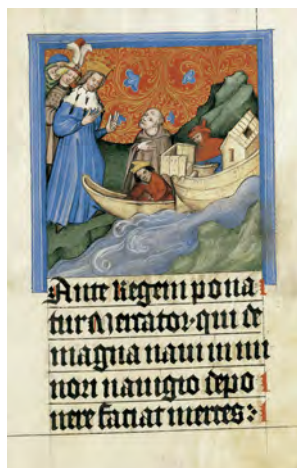 Ante Regem pona
tur Mercator, qui de
magna navi in mi
nori navigio depo
nere faciat merces :